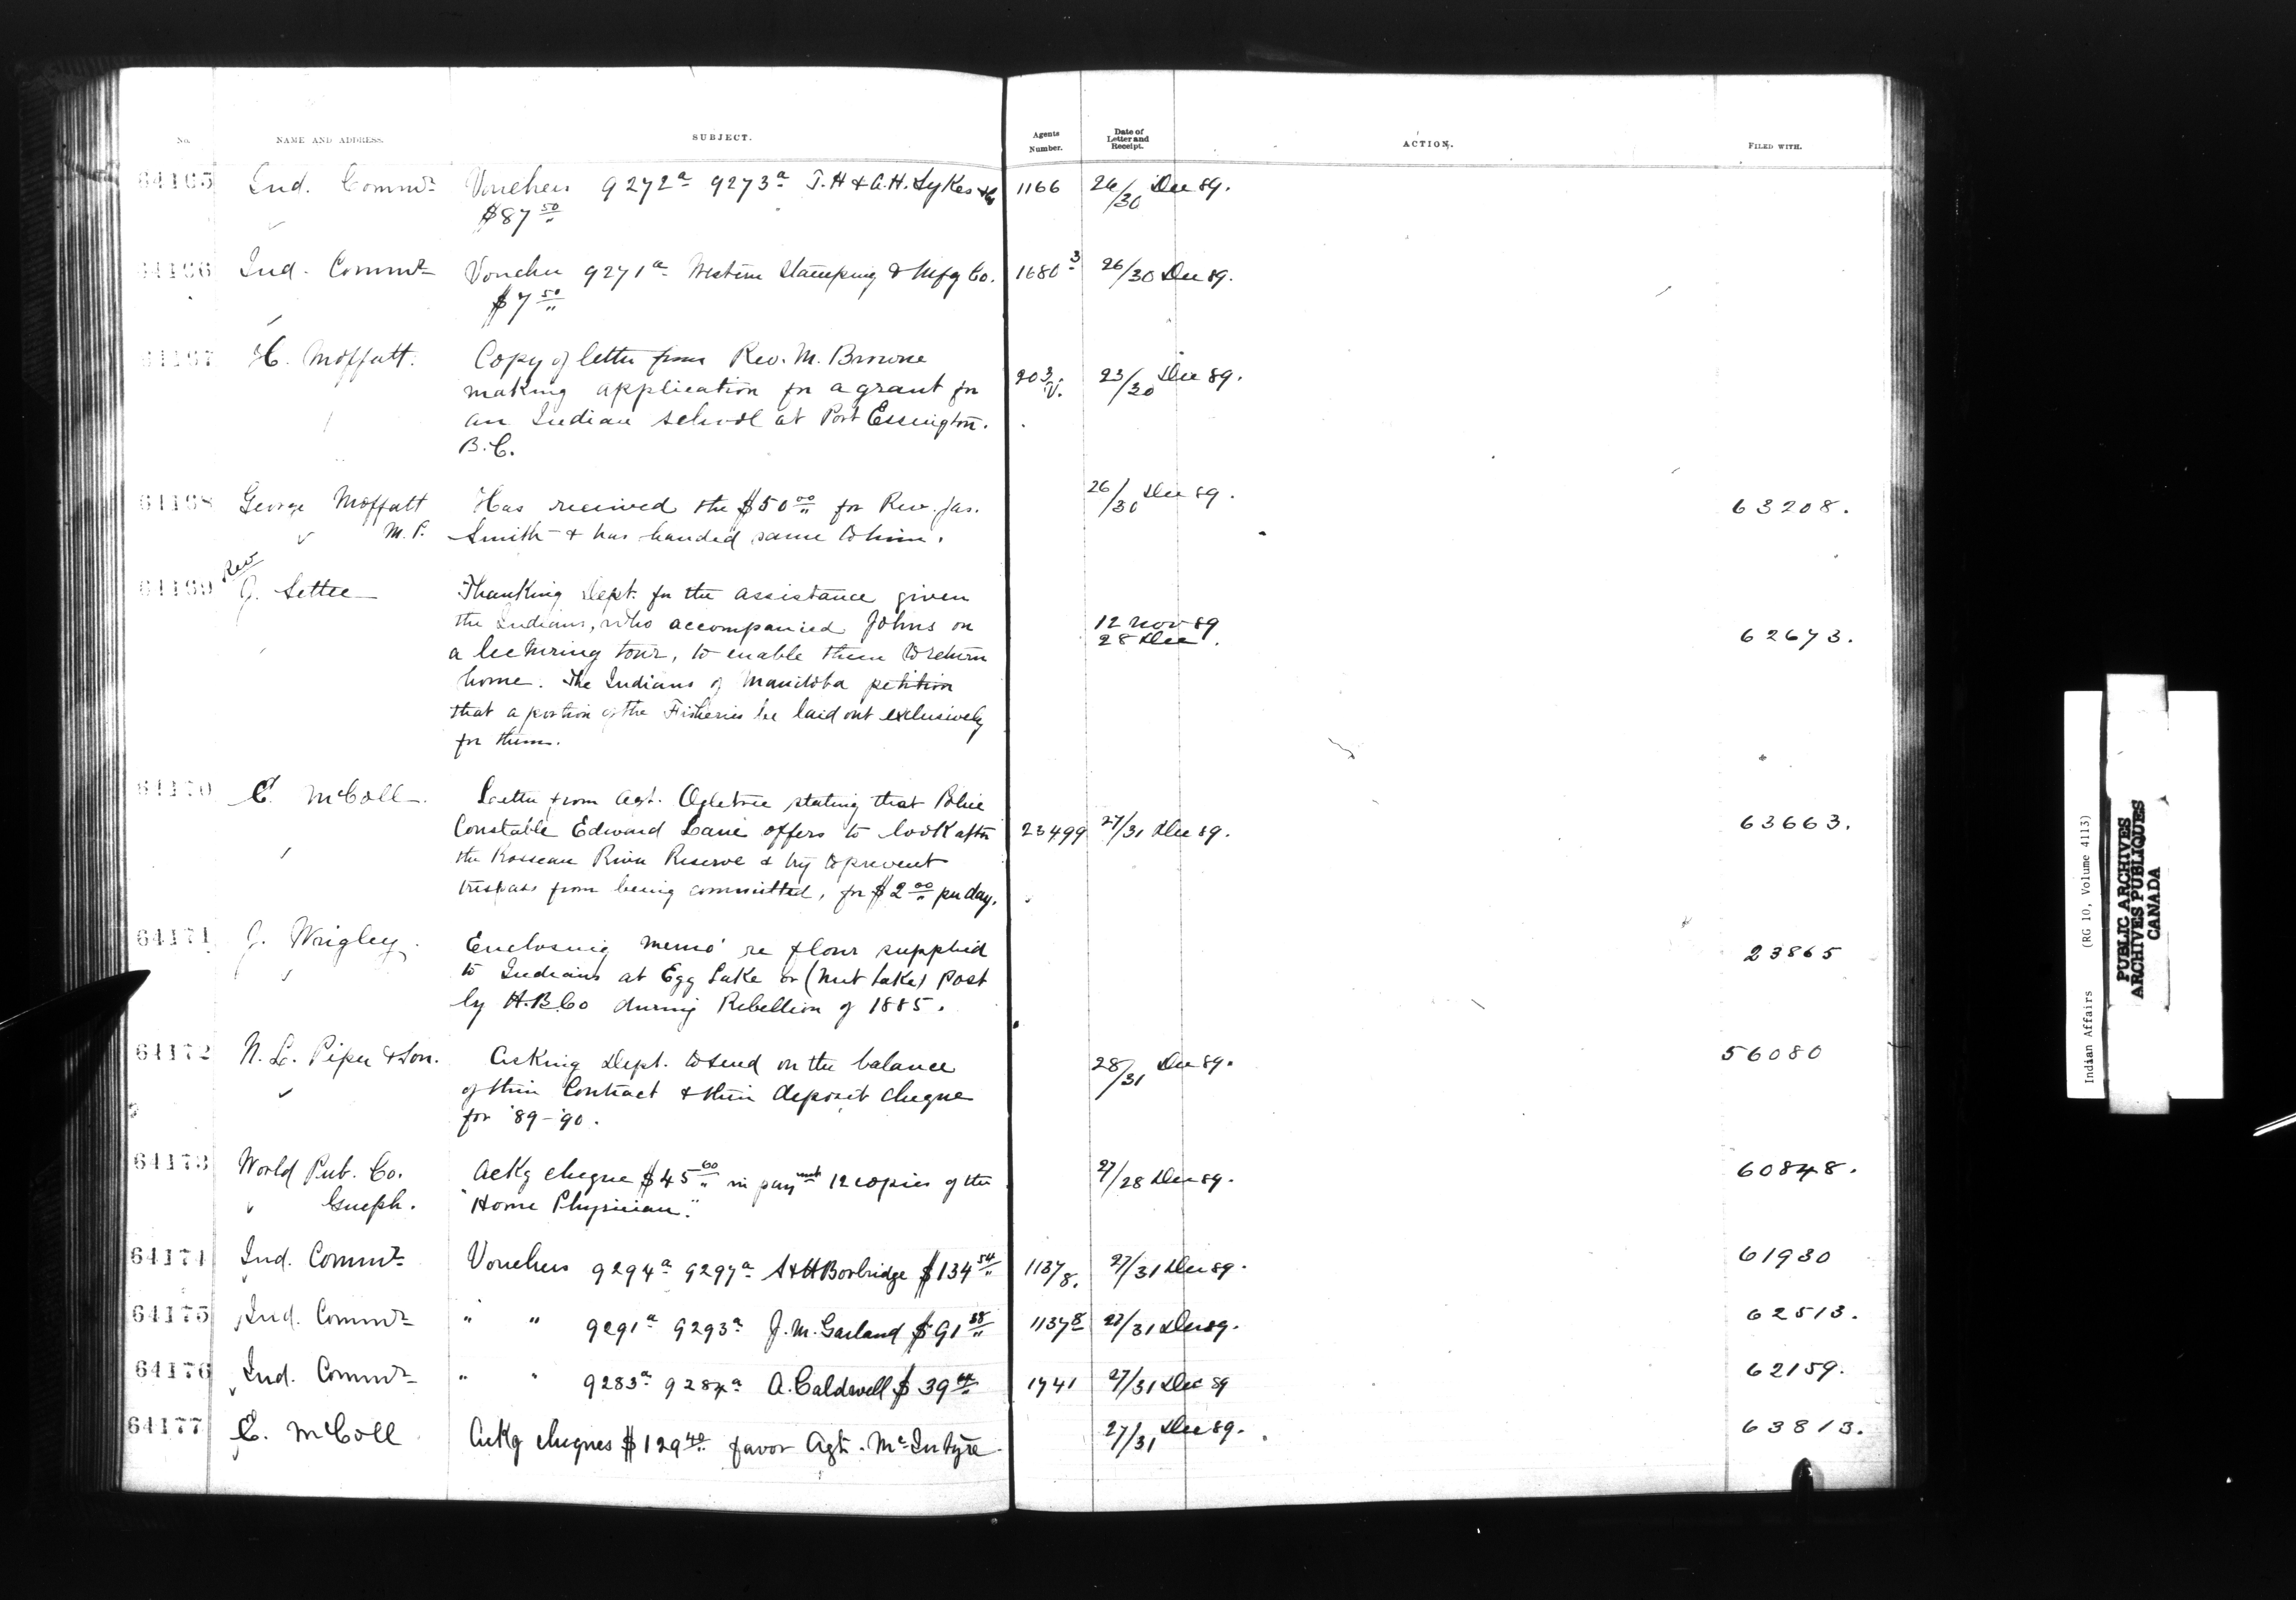 No. NAME AND ADDRESS. SUBJECT. Agents Number. Date of Letter and Receipt. ACTION. FILED WITH.
64165 Ind. Commr Vouchers 9272a 9273a T.H & A.H. Sykes & Co 1166 26/30 Dec 89.
$87 50
64166 Ind. Commr Voucher 9271a Western Stamping & Mfg Co. 1680 3 26/30 Dec 89.
$7 50
64167 H. Moffatt. Copy of letter from Rev. M. Browne
making application for a grant for 203/V. 23/30 Dec 89.
an Indian school at Port Essington.
B.C.
64168 George Moffatt Has received the $50 00 for Rev. Jas. 26/30 Dec 89. 63208.
M.P. Smith & has handed same to him.
64169 Rev J. Settee Thanking Dept. for the assistance given
the Indians, who accompanied Johns on 12 Nov 89
a lecturing tour, to enable them to return 28 Dec. 62673.
home. The Indians of Manitoba petition
that a portion of the Fisheries be laid out exclusively
for them.
64170 E. McColl. Letter from Agt. Ogletree stating that Police
Constable Edward Lane offers to look after 23499 27/31 Dec 89. 63663.
the Rosseau River Reserve & try to prevent
trespass from being committed, for $2 00 per day.
64171 J. Wrigley. Enclosing memo re flour supplied 23865
to Indians at Egg Lake or (Nut Lake) Post
by H.B.Co during Rebellion of 1885.
64172 N. L. Piper & Son. Asking Dept. to send on the balance 28/31 Dec 89. 56080
of their Contract & their deposit cheque
for '89-'90.
64173 World Pub. Co. Ackg cheque $45 60 in paymt 12 copies of the 27/28 Dec 89. 60848.
Guelph. "Home Physician."
64174 Ind. Commr Vouchers 9294a 9297a S & H Borbridge $134 54 1137/8. 27/31 Dec 89. 61930
64175 Ind. Commr " " 9291a 9293a J. M. Garland $91 88 1137 8 27/31 Dec 89. 62513.
64176 Ind. Commr " " 9283a 9284a A. Caldwell $39 1741 27/31 Dec 89 62159.
64177 E. McColl Ackg cheques $129 40 favor Agt. McIntyre. 27/31 Dec 89. 63813.
Indian Affairs (RG 10, Volume 4113)
PUBLIC ARCHIVES
ARCHIVES PUBLIQUES
CANADA